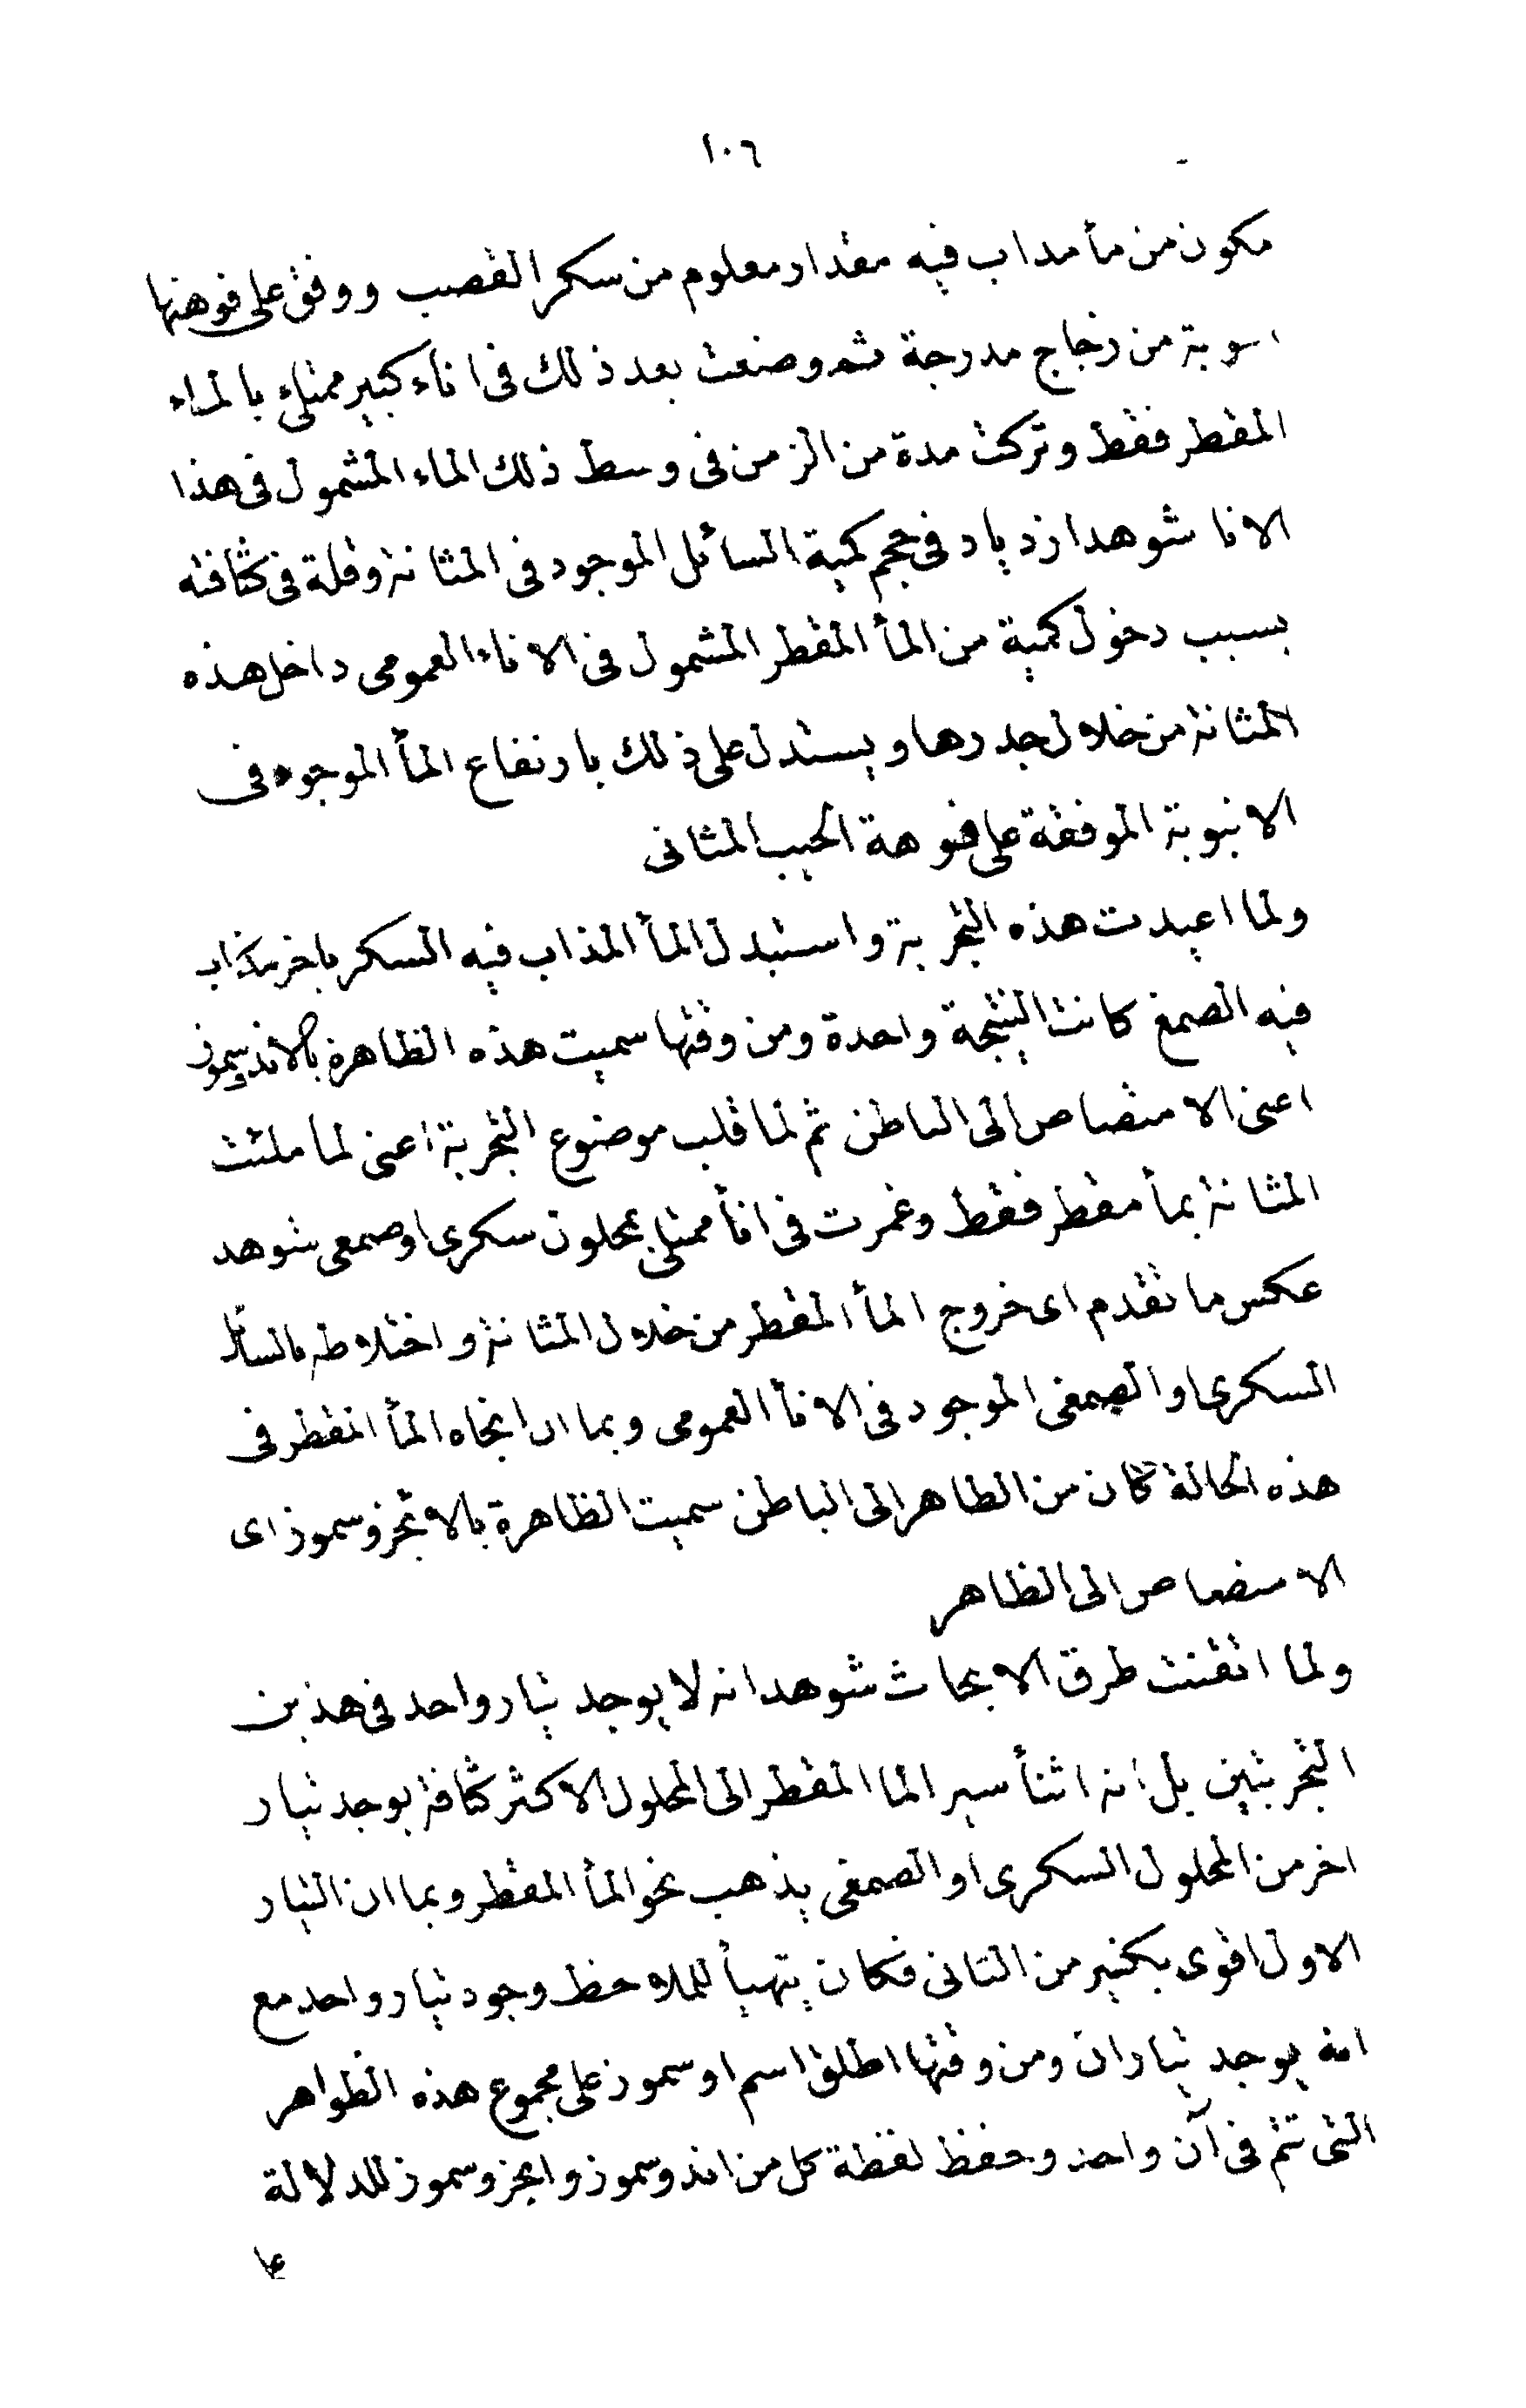 ١٠٦
مكون من مأ مداب فيه مقدار معلوم من سكر القصب ووفق على فوهتها
من زجاج مدرجة ثم وضعت بعد ذلك فى اناء كبير ممتلئ بالماء
المقطر فقط وتركت مدة من الزمن فى وسط ذلك الماء المشمول فى هذا
الانا شوهد ازدياد فى حجم كمية السائل الموجود فى المثانة وقلة فى كثافته
بسبب دخول كمية من المأ المقطر المشمول فى الاناء العمومى داخل هذه
المثانة من خلال جدرها ويستدل على ذلك بارتفاع المأ الموجود فى
الانبوبة الموفقة على فوهة الجيب المثانى
ولما اعيدت هذه التجربة واستبدل المأ المذاب فيه السكر باخر مذاب
فيه الصمغ كانت النتيجة واحدة ومن وقتها سميت هذه الظاهرة بالاندسموز
اعنى الامتصاص الى الباطن ثم لما قلب موضوع التجربة اعنى لما ملئت
المثانة بمأ مقطر فقط وغمرت فى انأ ممتلئ بمحلون سكرى اوصمعى شوهد
عكس ما تقدم اى خروج المأ المقطر من خلال المثانة واختلاطه بالسائل
السكرى او الصمغى الموجود فى الانأ العمومى وبما ان اتجاه المأ المقطر فى
هذه الحالة كان من الظاهر الى الباطن سميت الظاهرة بالاجزوسموز اى
الامتصاص الى الظاهر
ولما اتقنت طرق الابحاث شوهد انه لا يوجد تيار واحد فى هذين
التجربتين بل انه اثنأ سير الما المقطر الى المحلول الاكثر كثافة يوجد تيار
اخر من المحلول السكرى او الصمغى يذهب نحو المأ المقطر وبما ان التيار
الاول اقوى بكثير من الثانى فكان يتهيأ للملاحظ وجود تيار واحد مع
انه يوجد تياران ومن وقتها اطلق اسم اوسموز على مجموع هذه الظواهر
التى تتم فى آن واحد وحفظ لفظة كل من اندوسموز واجزوسموز للدلالة